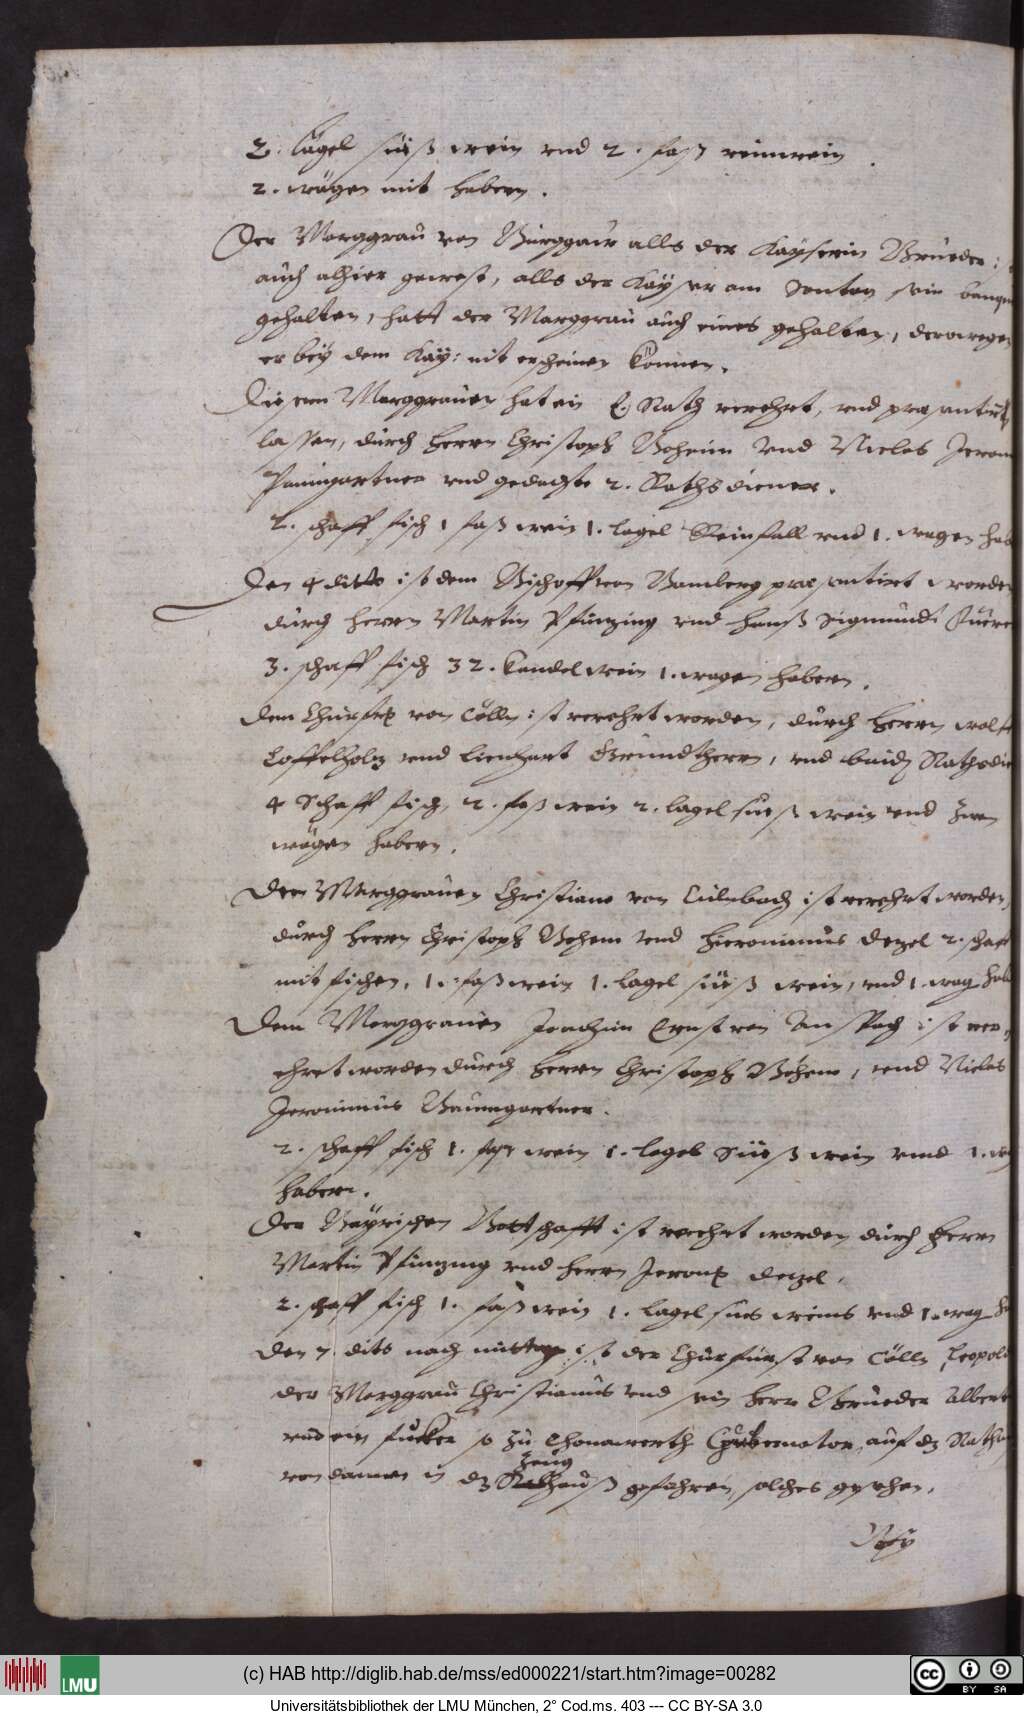 2. Lägel süeß wein vnd 2. faß reinwein.
2. wägen mit habern.
Der Marggrau von Burggaw alls der Kayserin Brueder
auch alhier gewest, alls der Kayser am Sontag sein
gehalten, hatt der Marggrau auch eines gehalten, derowegen
er bey dem Kay: nit erscheinen können.
Diesem Marggrauen hat ein E. Rath verehrt, vnd præsentirn
lassen, durch Herrn Christoph Böheim vnd Niclas
Paumgartner vnd gedachte 2. Rathsdiener.
2. schaff fisch 1 faß wein 1. lagel Reinfall vnd 1. wagen
Den 4 ditto ist dem Bischoff von Bamberg præsentirt worden
durch herrn Martin Pfinzing vnd Hanß Sigmundt
3. schaff fisch 32. kandel wein 1. wagen habern.
Dem Churfrs von Cölln ist verehrt worden, durch Herrn
Loffelholz vnd Lienhart Grundtherrn, vnd baide
4 Schaff fisch, 2. faß wein 2. lagel süeß wein vnd zwen
wägen habern.
Dem Marggrauen Christiano von Culnbach ist verehrt worden,
durch Herrn Christoph Behem vnd Hieronimus Dezel 2. schaff
mit fischen, 1. faß wein 1. lagel süeß wein, vnd 1. wag
Dem Marggrauen Joachim Ernst von Anspach ist ver-
ehret worden durch Herrn Christoph Böhem, vnd Niclas
Jeronimus Baumgartner.
2. schaff fisch 1. faß wein 1. legel Süeß wein vnnd 1.
habern.
Der Bayrischen Bottschafft ist verehrt worden durch Herrn
Martin Pfinzing vnd Herrn Dezel.
2. schaff fisch 1. faß wein 1. lagel sües weins vnd 1. wag
Den 7 dito nach mittag ist der Churfürst von Cölln,
der Marggrau Christianus vnd sein Herr Brueder
vnd ein fucker so zu Thonawerth Gubernator, auf dz
von dannen in dz Zeughauß gefahren, solches gesehen.